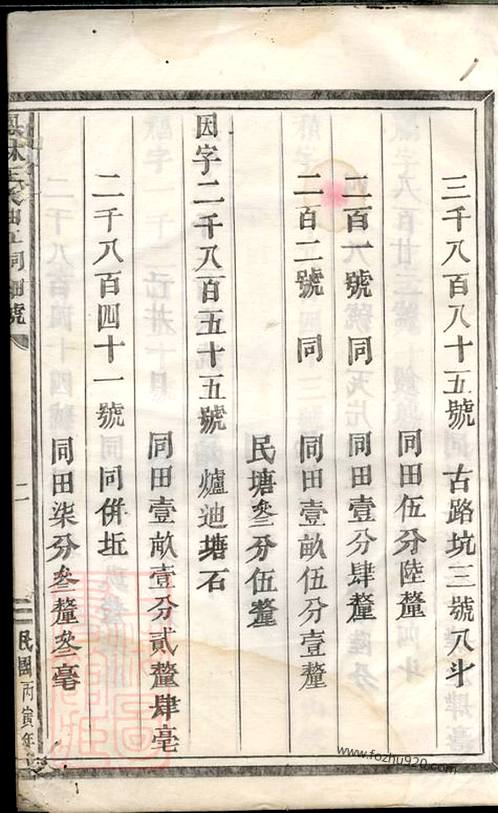 三千八百八十五號 古路坑三號八斗
同田伍分陸釐
二百一號 同 同田壹分肆釐
二百二號 同 同田壹畝伍分壹釐
民塘叁分伍釐
因字二千八百五十五號 爐迪塘石
同田壹畝壹分貳釐肆毫
二千八百四十一號 同併坵
同田柒分叁釐叁毫
二
民國丙寅年
www.fozhu920.com